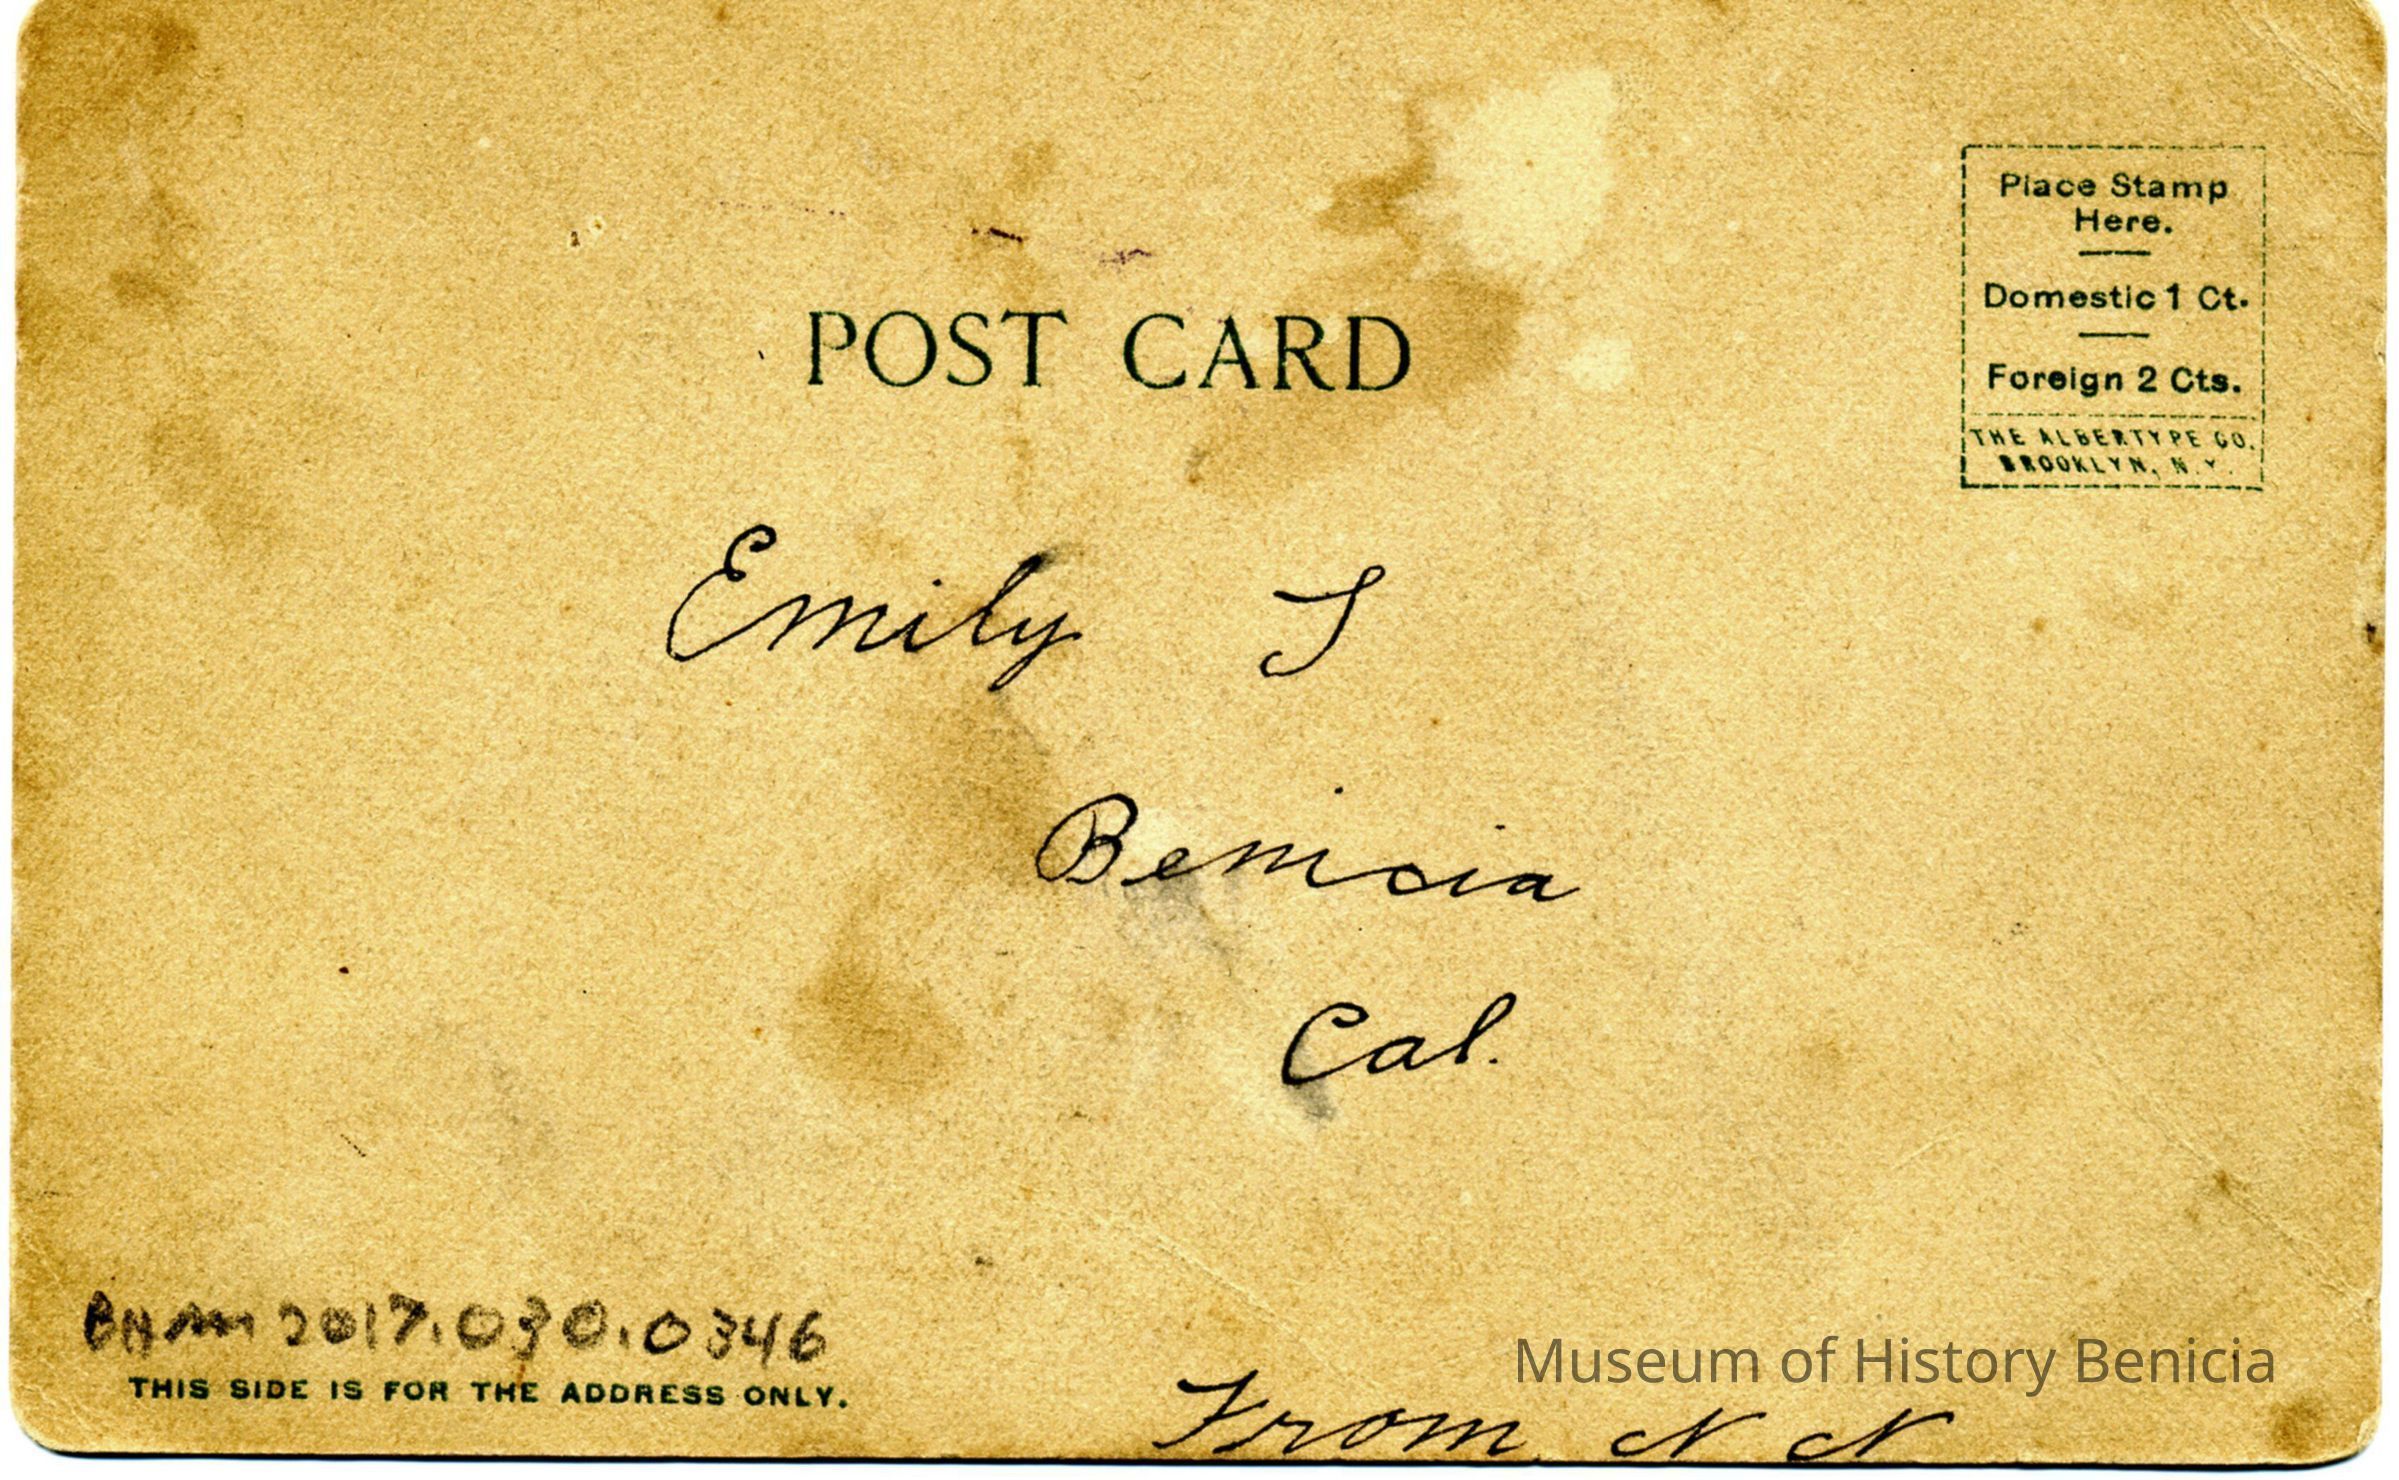 POST CARD
Place Stamp
Here.
Domestic 1 Ct.
Foreign 2 Cts.
THE ALBERTYPE CO.
BROOKLYN, N.Y.
Emily S
Benicia
Cal.
BHM 2017.030.0346
THIS SIDE IS FOR THE ADDRESS ONLY.
Museum of History Benicia
From N N